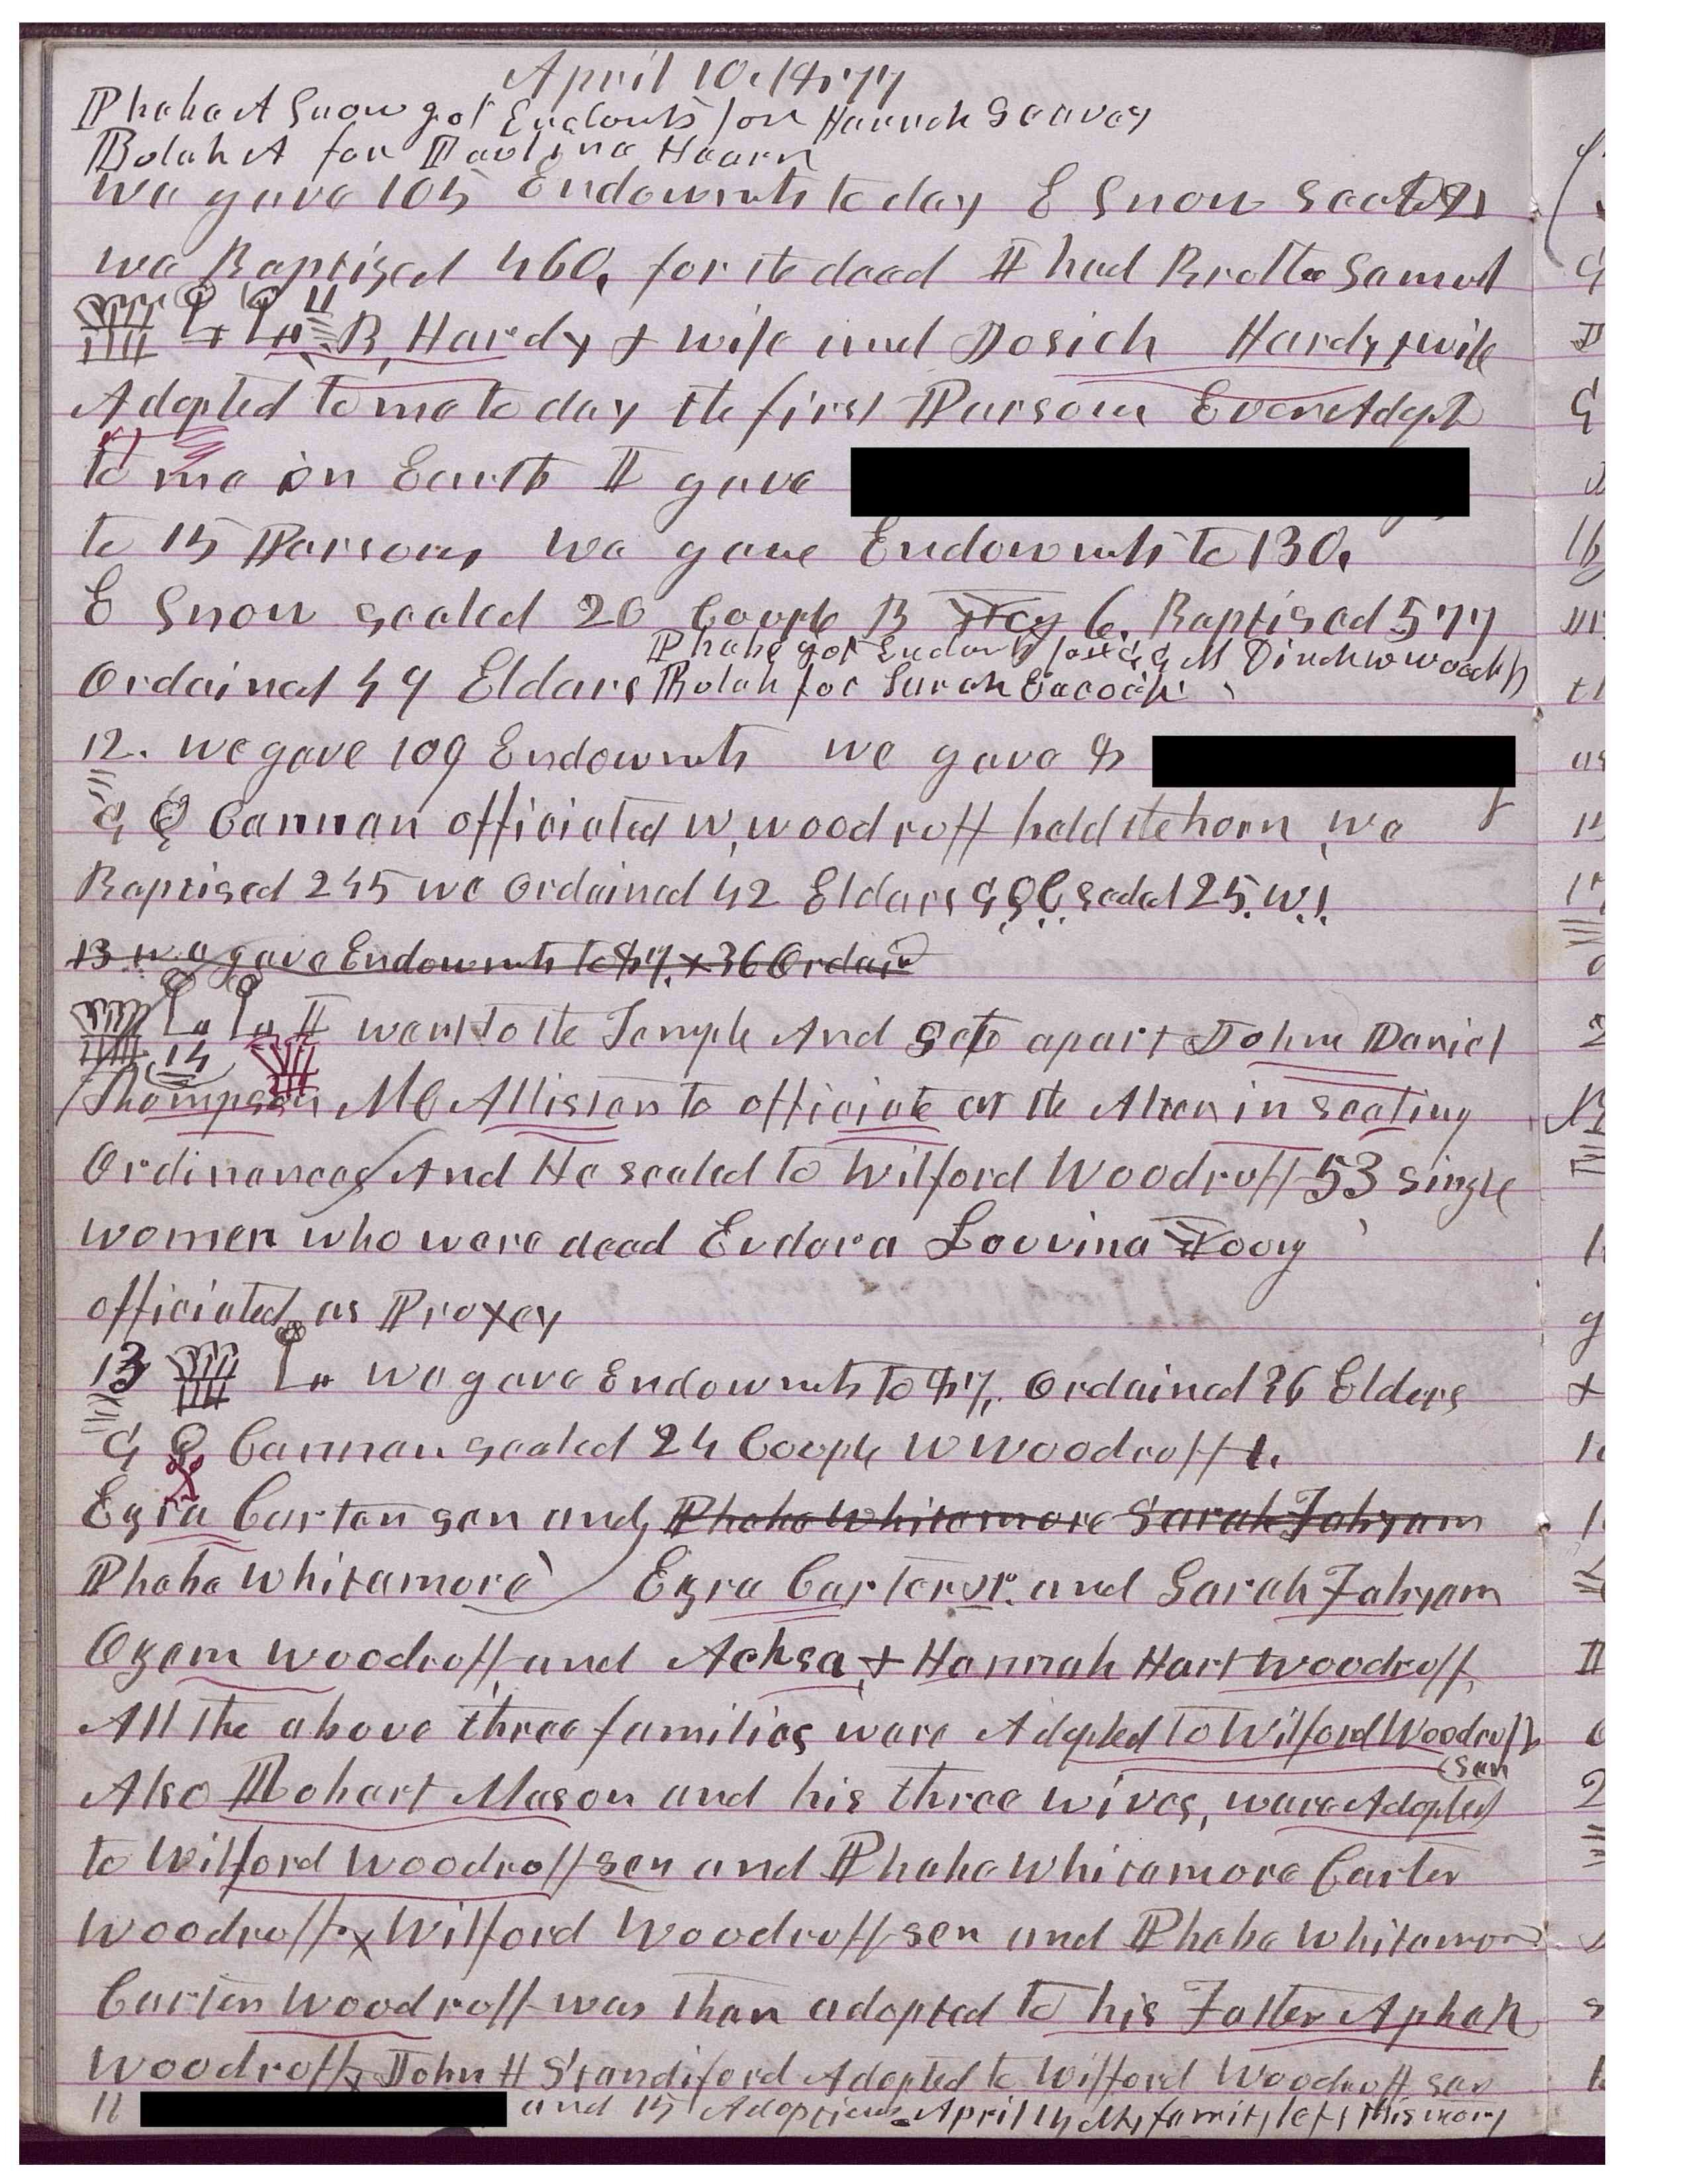 April 10, 1877
Phebe A Snow got Endowts for Hannah Seavey
Bulah A for Paulina Hearn
we gave 105 Endowmts to day E Snow sealed 21
we Baptised 460, for the dead I had Brother Samuel
11 B, Hardy & wife and Josiah Hardy & wife
Adopted to me to day the first Persons Ever Adopt
to me on Earth I gave
to 15 Persons we gave Endowmts to 130,
E Snow sealed 20 Coupls B 6. Baptised 577
Phebe got Endowts
Ordained 49 Elders Bulah for Sarah
12. we gave 109 Endowmts we gave 8
G Q Cannan officiated W, Woodruff held the horn, we
Baptised 245 we Ordained 42 Elders G Q C Sealed 25. W. 1.
13 we gave Endowmts to 87. & 36 Ordain
I went to the Temple And Set apart John Daniel
14
Thompson McAllister to officiate at the Alter in sealing
Ordinances And He sealed to Wilford Woodruff 53 single
women who were dead Eudora Lovina Young
officiated as Proxey
13 we gave Endowmts to 87, Ordained 36 Elders
G Q Cannan sealed 24 Couple W Woodruff 1.
Ezra Carter sen and Phebe Whitemore Sarah Fabyan
Phebe Whitemore Ezra Carter Jr. and Sarah Fabyan
Ozem Woodruff, and Achsa, & Hannah Hart Woodruff,
All the above three families were Adopted to Wilford Woodruff
(sen
Also Robart Mason and his three wives, were Adopted
to Wilford Woodruff sen and Phebe Whitemore Carter
Woodruff. x Wilford Woodruff sen and Phebe Whitemore
Carter Woodruff was then adopted to his Father Aphek
Woodruff, John H Standiford Adopted to Wilford Woodruff sen
11 and 15 Adoptions April 14 My family left this morg